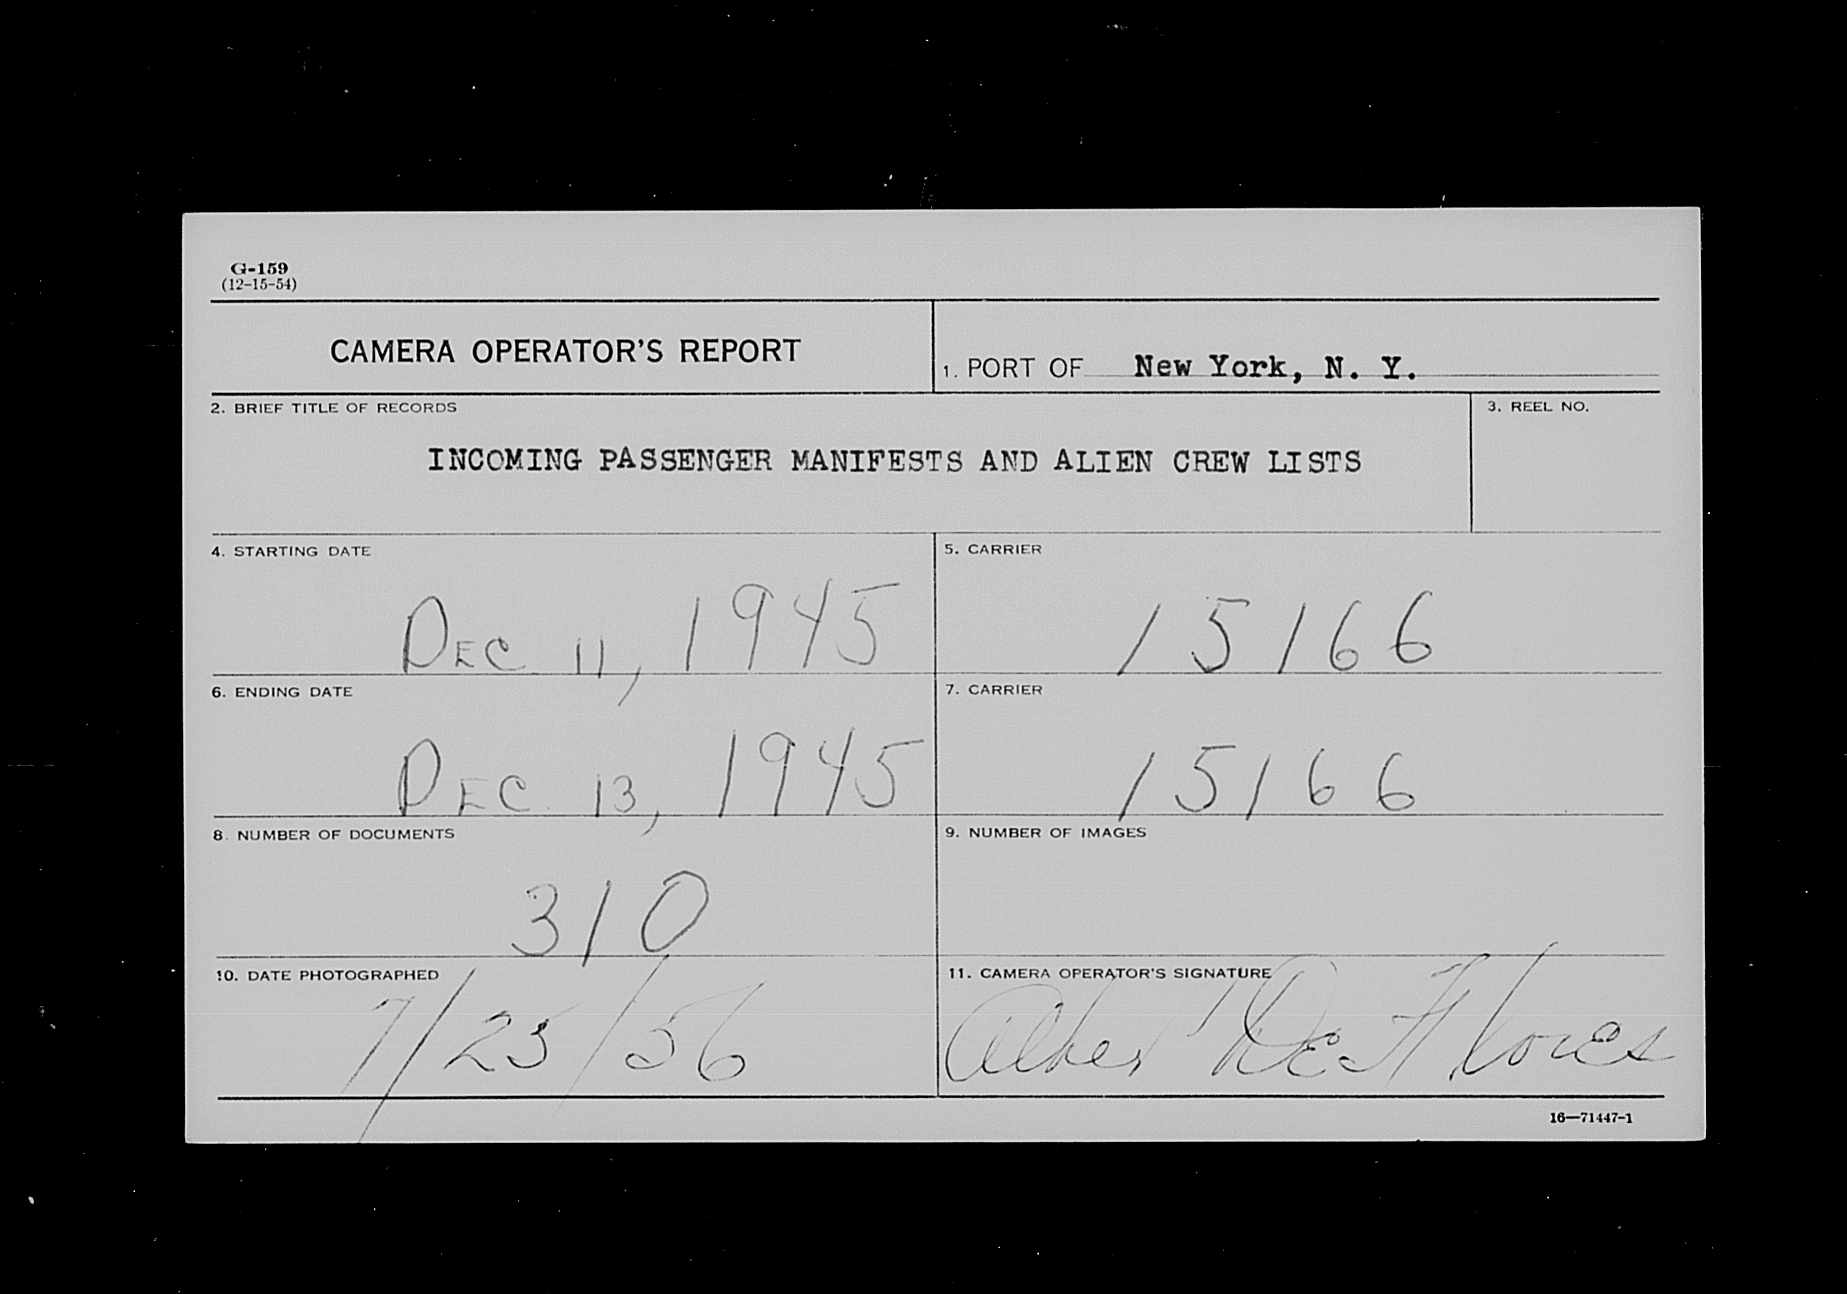 G-159
(12-15-54)
CAMERA OPERATOR'S REPORT
1. PORT OF New York, N. Y.
2. BRIEF TITLE OF RECORDS
3. REEL NO.
INCOMING PASSENGER MANIFESTS AND ALIEN CREW LISTS
4. STARTING DATE
5. CARRIER
DEC 11, 1945
15166
6. ENDING DATE
7. CARRIER
DEC. 13, 1945
15166
8. NUMBER OF DOCUMENTS
9. NUMBER OF IMAGES
310
10. DATE PHOTOGRAPHED
11. CAMERA OPERATOR'S SIGNATURE
7/25/56
De Flores
16—71447-1